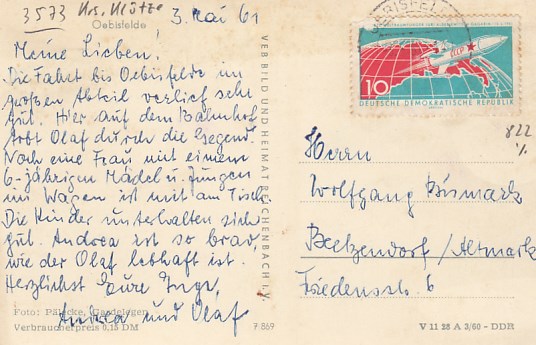 3573 Krs. Klötze
Oebisfelde
3. Mai 61
Meine Lieben!
Die Fahrt bis Oebisfelde im
großen Abteil verlief sehr
gut. Hier auf dem Bahnhof
tobt Olaf durch die Gegend.
Noch eine Frau mit einem
6-jährigen Mädel u. Jungen
im Wagen ist mit am Tisch.
Die Kinder unterhalten sich
gut. Andrea ist so brav
wie der Olaf lebhaft ist.
Herzlichst Eure Inge,
Andrea und Olaf
Foto: Gardelegen
Verbraucherpreis 0.15 DM
7 869
VEB BILD UND HEIMAT REICHENBACH I. V.
OEBISFELDE
CCCP
10
DEUTSCHE DEMOKRATISCHE REPUBLIK
822
Herrn
Wolfgang Bismark
Beetzendorf/Altmark
Friedensstr. 6
V 11 28 A 3/60 - DDR